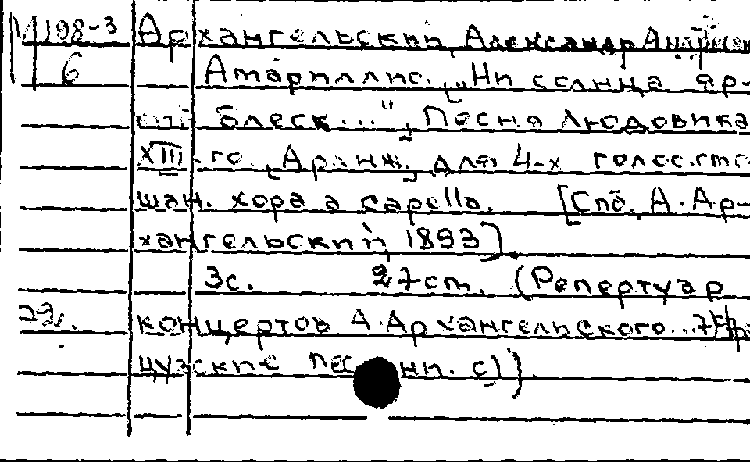 М198-3 Архангельский, Александр Андреев
6 Амариллис. „Ни солнца яр-
кий блеск..." Песня Людовика
XIII-го. Аранж. для 4-х голос. сме-
шан. хора a capella. [Спб. А. Ар-
хангельский, 1893].
3с. 27cm. (Репертуар
22. концертов А. Архангельского...
цузские песни. с))